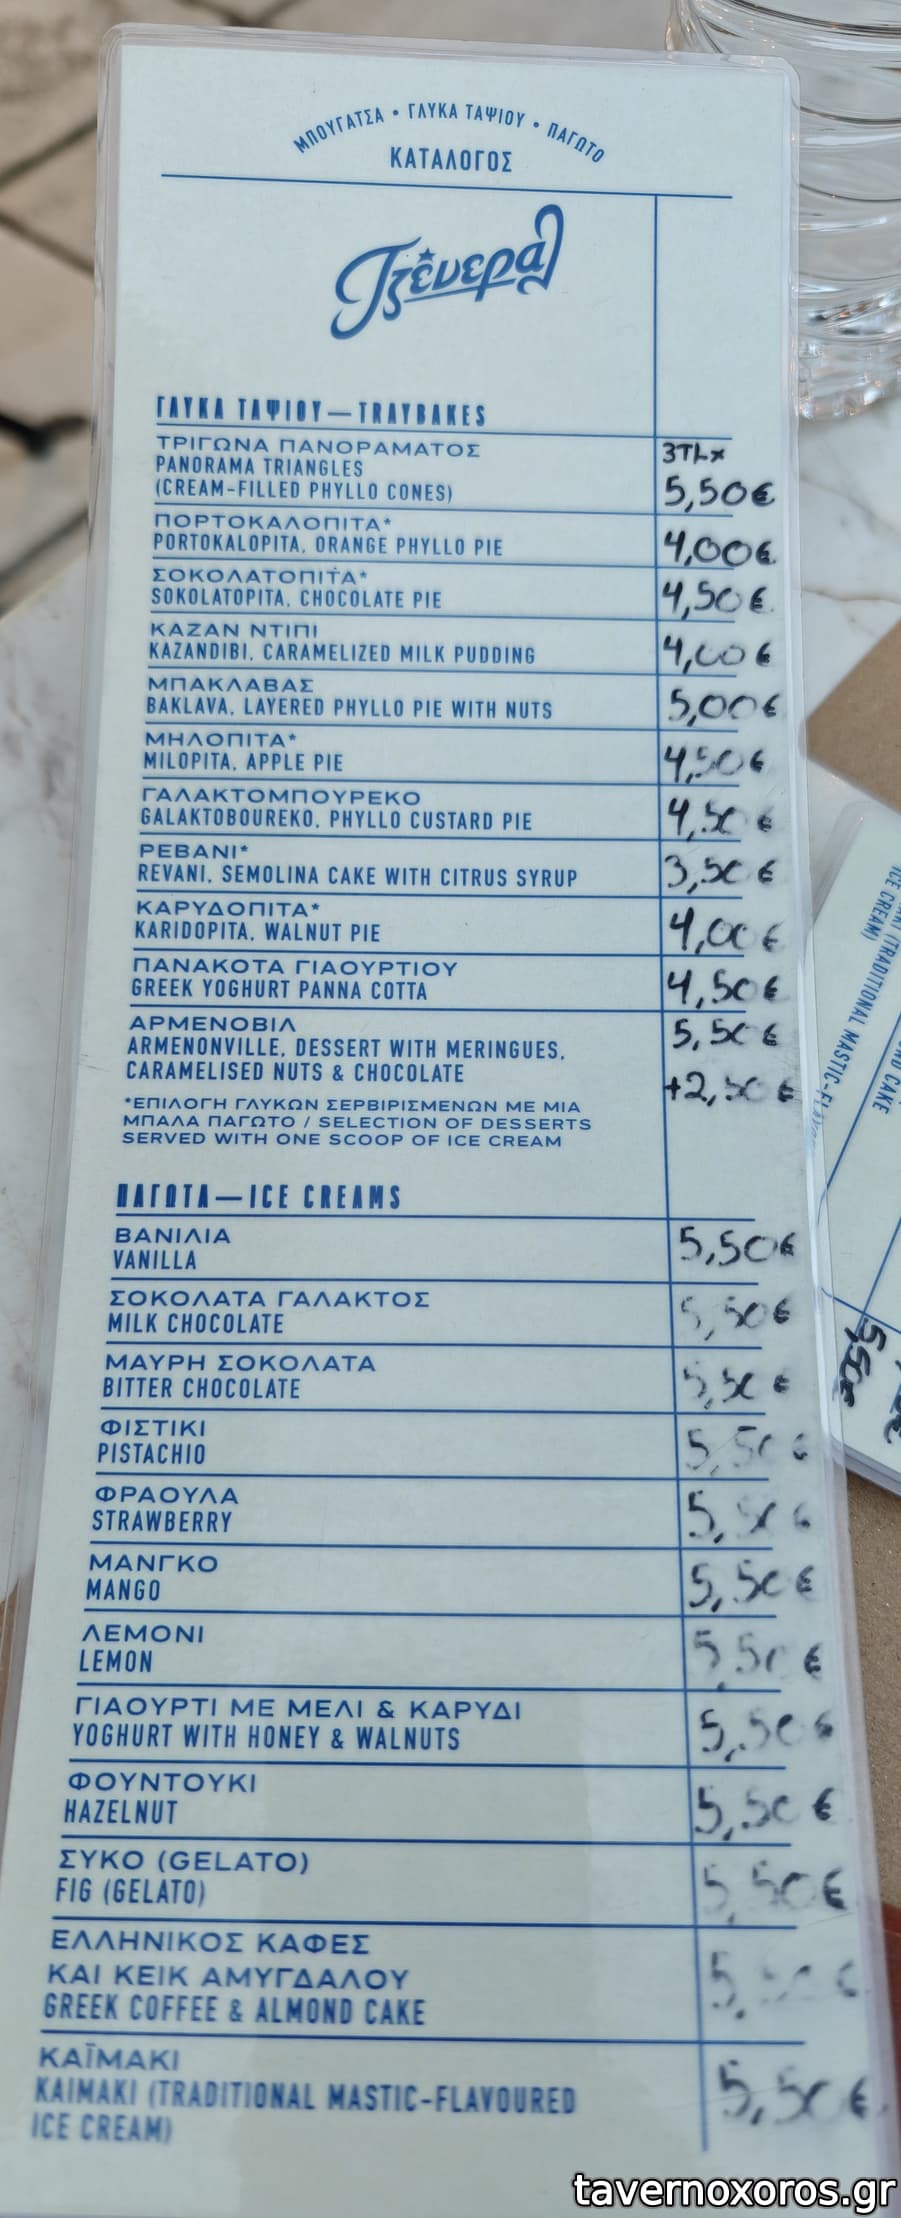 ΜΠΟΥΓΑΤΣΑ • ΓΛΥΚΑ ΤΑΨΙΟΥ • ΠΑΓΩΤΟ
ΚΑΤΑΛΟΓΟΣ
Τζένεραλ
ΓΛΥΚΑ ΤΑΨΙΟΥ — TRAYBAKES
ΤΡΙΓΩΝΑ ΠΑΝΟΡΑΜΑΤΟΣ 3ΤΛχ
PANORAMA TRIANGLES
(CREAM-FILLED PHYLLO CONES) 5,50€
ΠΟΡΤΟΚΑΛΟΠΙΤΑ*
PORTOKALOPITA, ORANGE PHYLLO PIE 4,00€
ΣΟΚΟΛΑΤΟΠΙΤΑ*
SOKOLATOPITA, CHOCOLATE PIE 4,50€
ΚΑΖΑΝ ΝΤΙΠΙ
KAZANDIBI, CARAMELIZED MILK PUDDING 4,00€
ΜΠΑΚΛΑΒΑΣ
BAKLAVA, LAYERED PHYLLO PIE WITH NUTS 5,00€
ΜΗΛΟΠΙΤΑ*
MILOPITA, APPLE PIE 4,50€
ΓΑΛΑΚΤΟΜΠΟΥΡΕΚΟ
GALAKTOBOUREKO, PHYLLO CUSTARD PIE 4,50€
ΡΕΒΑΝΙ*
REVANI, SEMOLINA CAKE WITH CITRUS SYRUP 3,50€
ΚΑΡΥΔΟΠΙΤΑ*
KARIDOPITA, WALNUT PIE 4,00€
ΠΑΝΑΚΟΤΑ ΓΙΑΟΥΡΤΙΟΥ
GREEK YOGHURT PANNA COTTA 4,50€
ΑΡΜΕΝΟΒΙΛ 5,50€
ARMENONVILLE, DESSERT WITH MERINGUES,
CARAMELISED NUTS & CHOCOLATE +2,50€
*ΕΠΙΛΟΓΗ ΓΛΥΚΩΝ ΣΕΡΒΙΡΙΣΜΕΝΩΝ ΜΕ ΜΙΑ
ΜΠΑΛΑ ΠΑΓΩΤΟ / SELECTION OF DESSERTS
SERVED WITH ONE SCOOP OF ICE CREAM
ΠΑΓΩΤΑ — ICE CREAMS
ΒΑΝΙΛΙΑ
VANILLA 5,50€
ΣΟΚΟΛΑΤΑ ΓΑΛΑΚΤΟΣ
MILK CHOCOLATE 5,50€
ΜΑΥΡΗ ΣΟΚΟΛΑΤΑ
BITTER CHOCOLATE 5,50€
ΦΙΣΤΙΚΙ
PISTACHIO 5,50€
ΦΡΑΟΥΛΑ
STRAWBERRY 5,50€
ΜΑΝΓΚΟ
MANGO 5,50€
ΛΕΜΟΝΙ
LEMON 5,50€
ΓΙΑΟΥΡΤΙ ΜΕ ΜΕΛΙ & ΚΑΡΥΔΙ
YOGHURT WITH HONEY & WALNUTS 5,50€
ΦΟΥΝΤΟΥΚΙ
HAZELNUT 5,50€
ΣΥΚΟ (GELATO)
FIG (GELATO) 5,50€
ΕΛΛΗΝΙΚΟΣ ΚΑΦΕΣ
ΚΑΙ ΚΕΙΚ ΑΜΥΓΔΑΛΟΥ
GREEK COFFEE & ALMOND CAKE 5,50€
ΚΑΪΜΑΚΙ
KAIMAKI (TRADITIONAL MASTIC-FLAVOURED 5,50€
ICE CREAM)
(TRADITIONAL MASTIC-
ICE CREAM)
CAKE
5,50€
tavernoxoros.gr